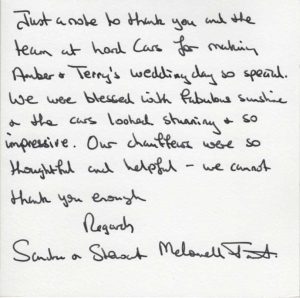 Just a note to thank you and the
team at hord Cars for making
Amber & Terry's wedding day so special.
We were blessed with fabulous sunshine
& the cars looked stunning & so
impressive. Our chauffeurs were so
thoughtful and helpful - we cannot
thank you enough
Regards
Sandra & Stewart